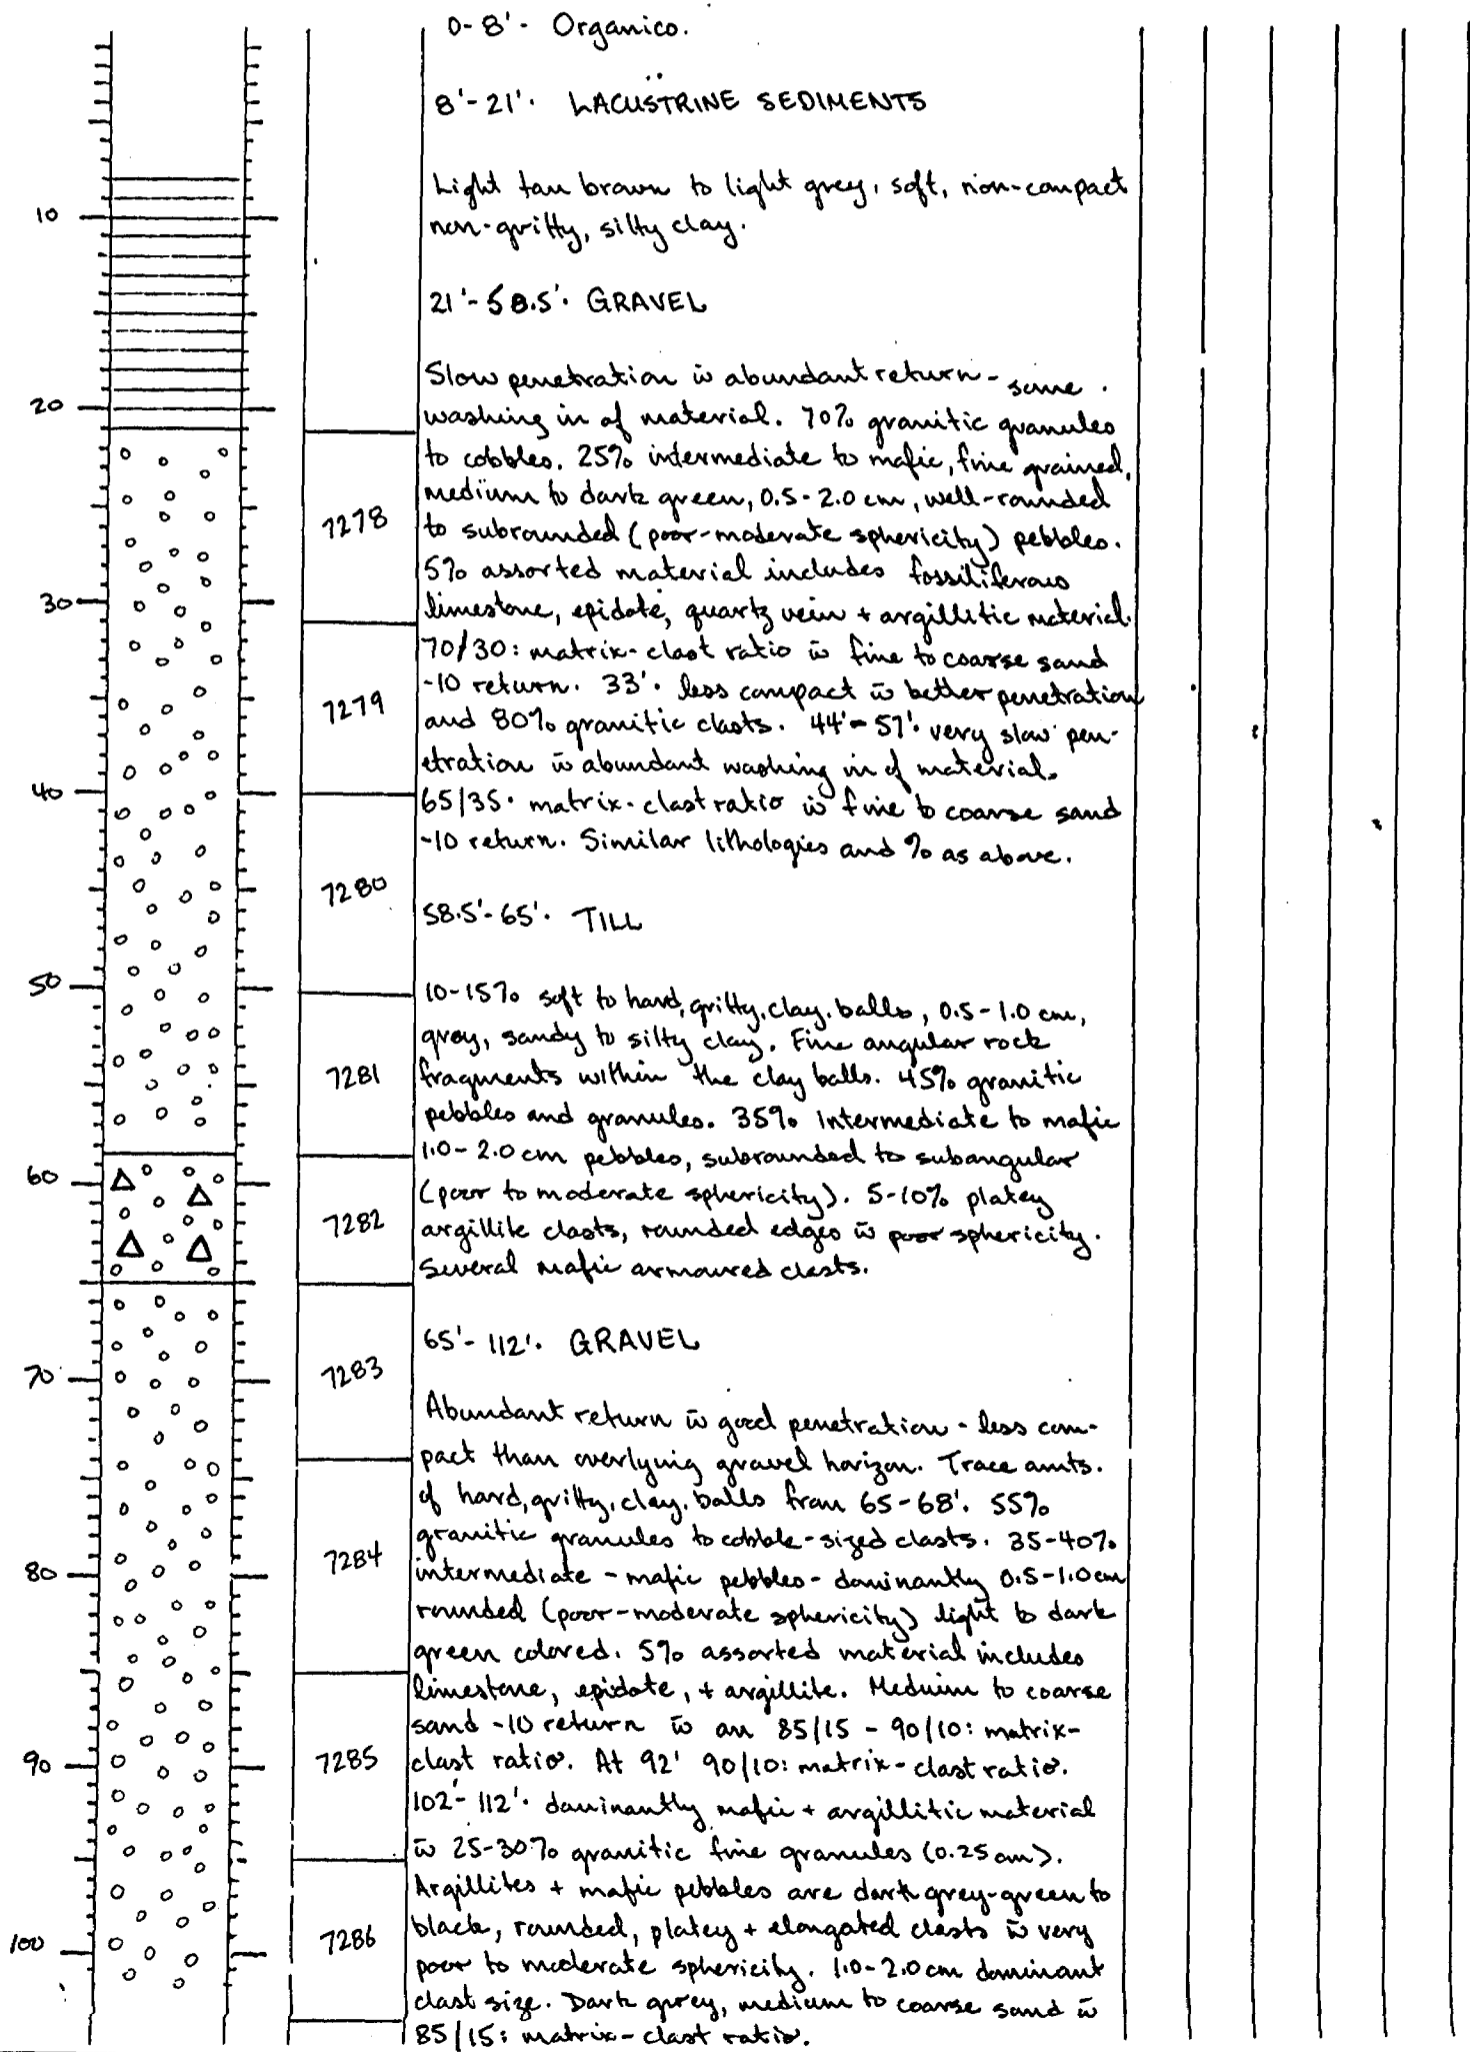 0-8'- Organico.
8'-21'. LACUSTRINE SEDIMENTS
Light tan brown to light grey, soft, non-compact
10
non-gritty, silty clay.
21'-58.5'. GRAVEL
Slow penetration w̄ abundant return - some
20
washing in of material. 70% granitic granules
to cobbles. 25% intermediate to mafic, fine grained,
medium to dark green, 0.5-2.0 cm, well-rounded
7278
to subrounded (poor-moderate sphericity) pebbles.
5% assorted material includes fossiliferous
30
limestone, epidote, quartz vein + argillitic material.
70/30: matrix-clast ratio w̄ fine to coarse sand
-10 return. 33'. less compact w̄ better penetration
7279
and 80% granitic clasts. 44'-57'. very slow pen-
etration w̄ abundant washing in of material.
40
65/35. matrix-clast ratio w̄ fine to coarse sand
-10 return. Similar lithologies and % as above.
7280
58.5'-65'. TILL
50
10-15% soft to hard, gritty, clay balls, 0.5-1.0 cm,
grey, sandy to silty clay. Fine angular rock
7281
fragments within the clay balls. 45% granitic
pebbles and granules. 35% intermediate to mafic
1.0-2.0 cm pebbles, subrounded to subangular
60
(poor to moderate sphericity). 5-10% platey
7282
argillite clasts, rounded edges w̄ poor sphericity.
Several mafic armoured clasts.
65'-112'. GRAVEL
70
7283
Abundant return w̄ good penetration - less com-
pact than overlying gravel horizon. Trace amts.
of hard, gritty, clay balls from 65-68'. 55%
granitic granules to cobble-sized clasts. 35-40%
7284
80
intermediate - mafic pebbles - dominantly 0.5-1.0 cm
rounded (poor-moderate sphericity) light to dark
green colored. 5% assorted material includes
limestone, epidote, + argillite. Medium to coarse
sand -10 return w̄ an 85/15 - 90/10: matrix-
90
7285
clast ratio. At 92' 90/10: matrix-clast ratio.
102'-112'. dominantly mafic + argillitic material
w̄ 25-30% granitic fine granules (0.25 cm).
Argillites + mafic pebbles are dark grey-green to
100
7286
black, rounded, platey + elongated clasts w̄ very
poor to moderate sphericity. 1.0-2.0 cm dominant
clast size. Dark grey, medium to coarse sand w̄
85/15: matrix-clast ratio.